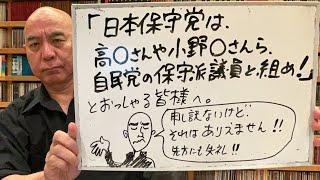 「日本保守党は、
高〇さんや小野〇さんら、
自民党の保守派議員と組め!」
とおっしゃる皆様へ。
申し訳ないけど、
それはありえません!!
先方にも失礼!!